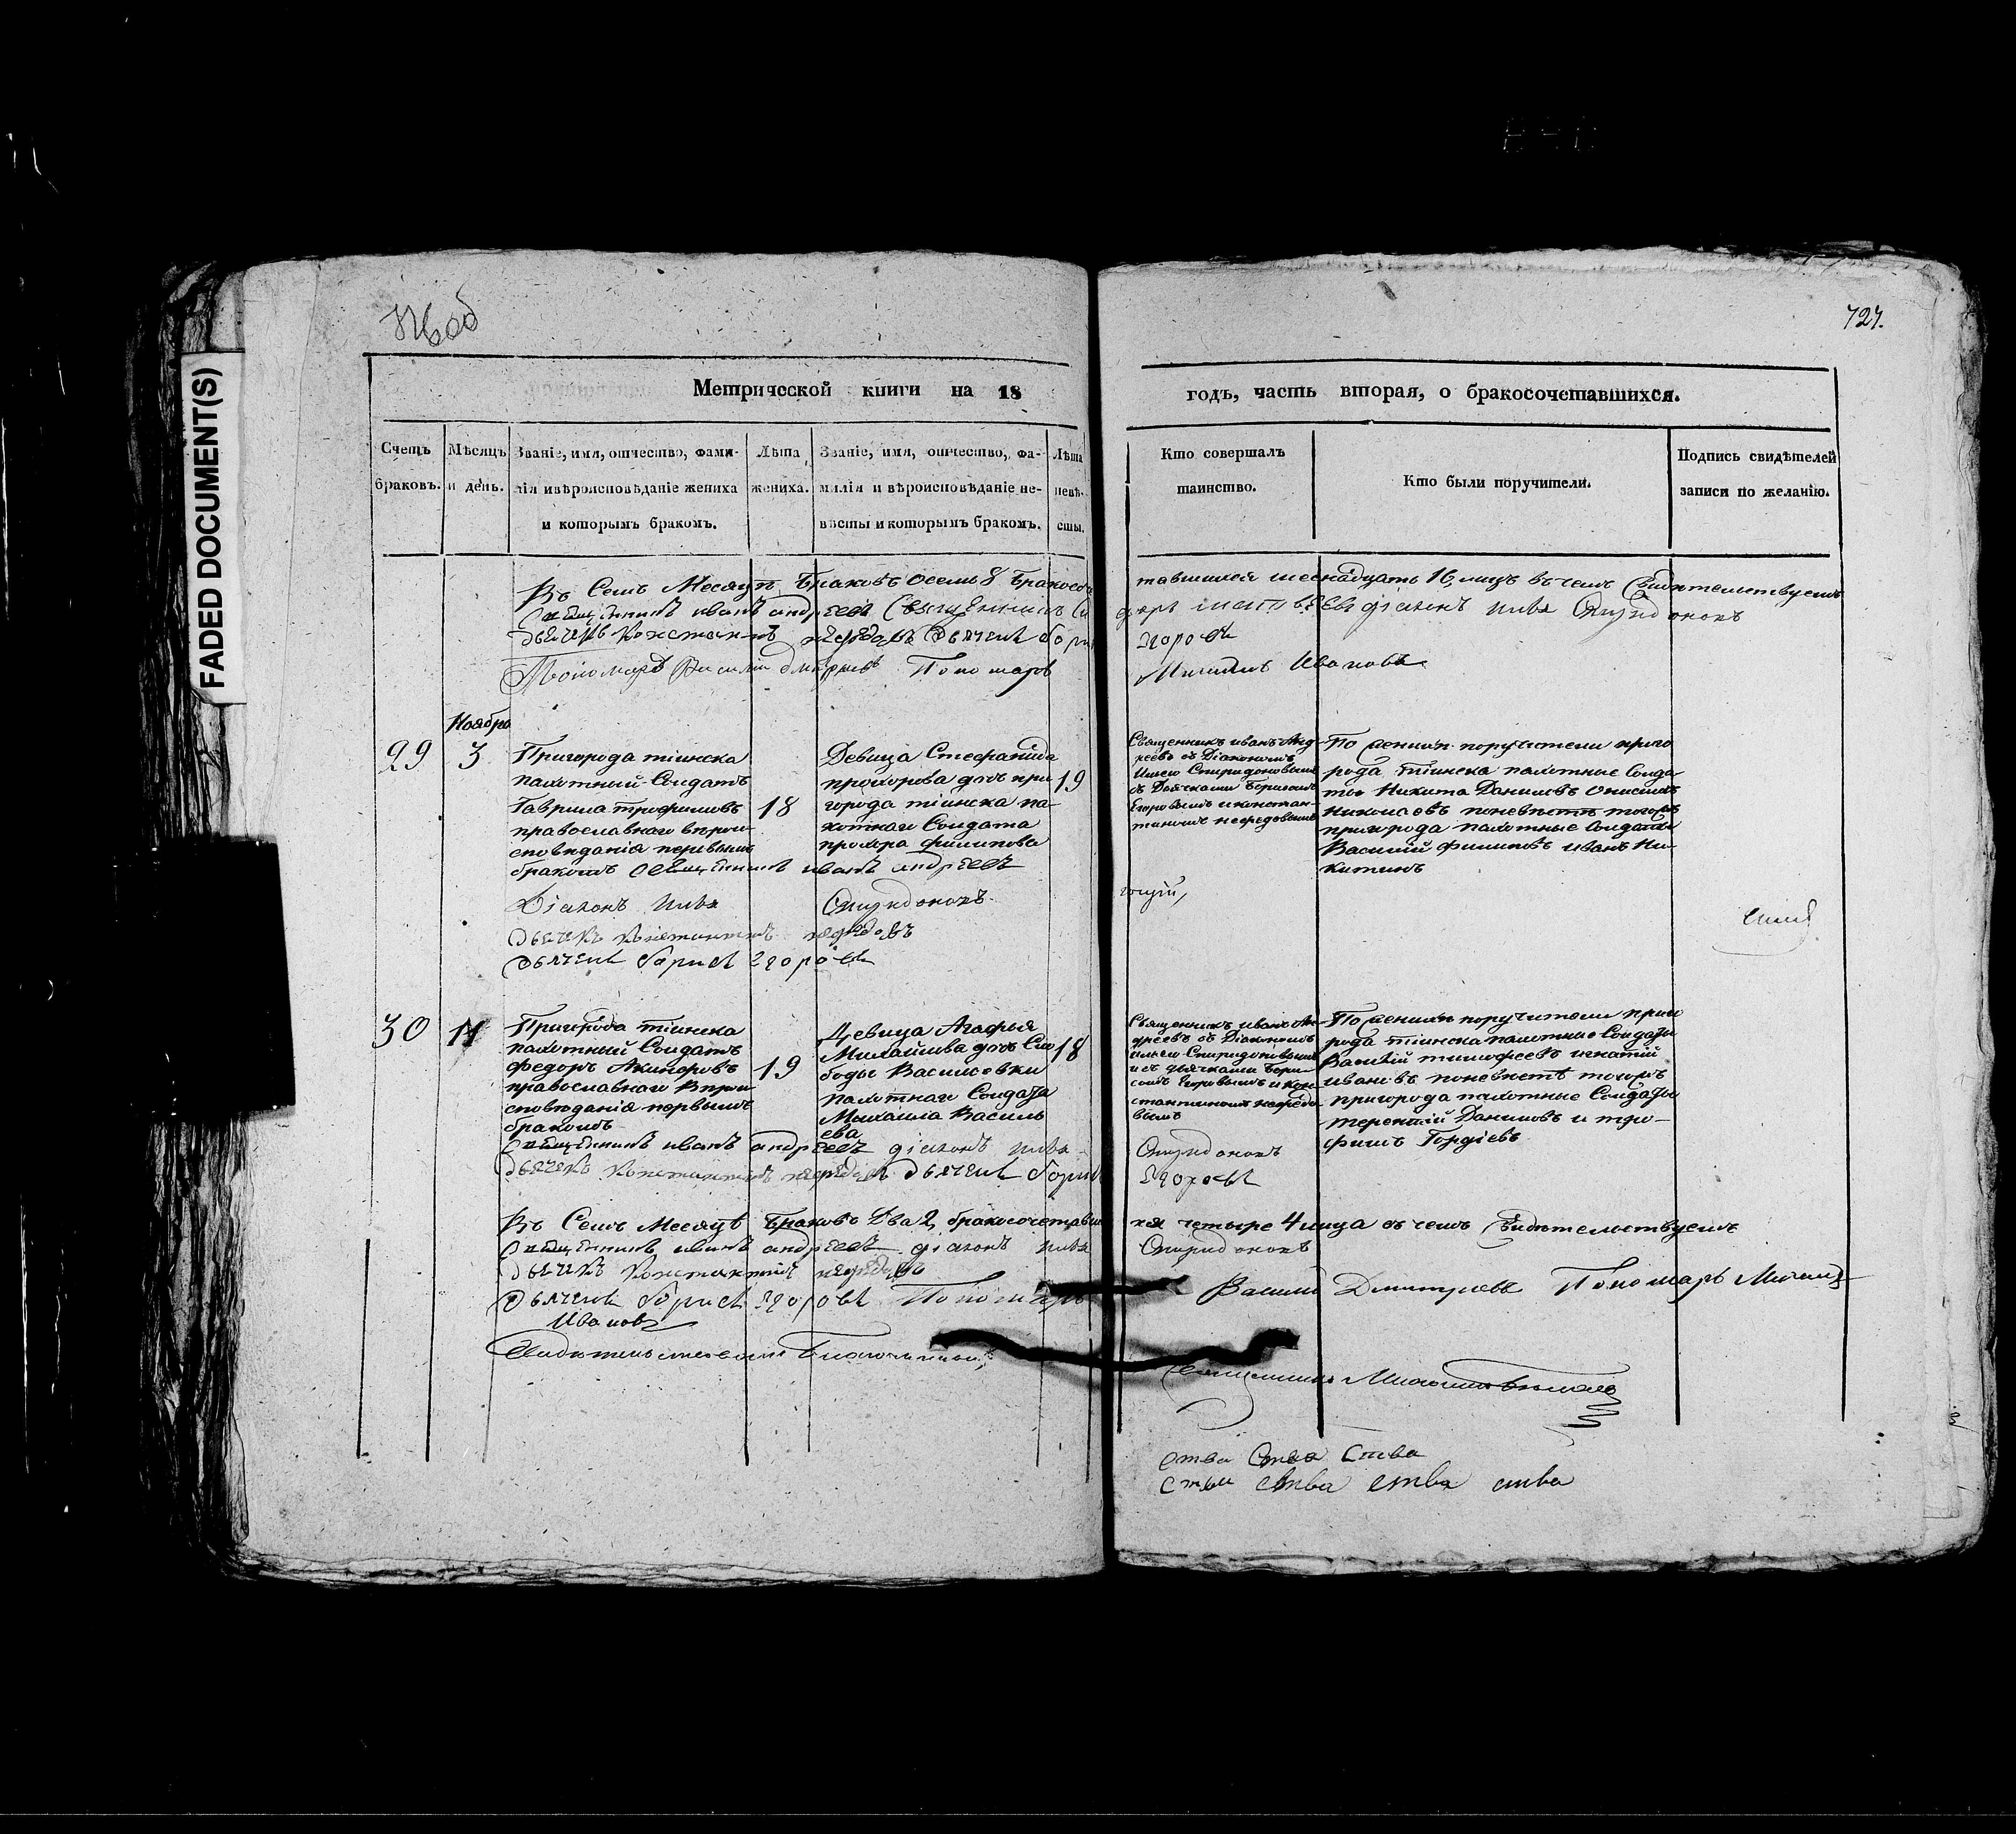 FADED DOCUMENT(S)
727.
Метрической книги на 18
годъ, часть вторая, о бракосочетавшихся.
Счетъ браковъ.
Мѣсяцъ и день.
Званіе, имя, отчество, фами-
лія и вѣроисповѣданіе жениха
и которымъ бракомъ.
Лѣта
жениха.
Званіе, имя, отчество, фа-
милія и вѣроисповѣданіе не-
вѣсты и которымъ бракомъ.
Лѣта
невѣ-
сты.
Кто совершалъ
таинство.
Кто были поручители.
Подпись свидѣтелей
записи по желанію.
Въ Семъ Месяцѣ Браковъ осемь 8 Бракосоче
тавшихся шеснадцать 16, лицъ въ чемъ Свидѣтельствуемъ
Священникъ иванъ андреевъ Священникъ
діаконъ илья Спиридоновъ
дьячекъ Константинъ нефедовъ дьячекъ борисъ
Егоровъ
Пономарь Василій Дмитріевъ Пономарь
Михаилъ Ивановъ
Ноября
29
3
Пригорода тіинска
пахотный Солдатъ
Гаврила трофимовъ
православнаго вѣрои-
сповѣданія первымъ
бракомъ
18
Девица Стефанида
прохорова дочь при
города тіинска па-
хотнаго Солдата
прохора филипова
19
Священникъ иванъ Анд-
реевъ съ Діакономъ
Ильею Спиридоновымъ
съ Дьячками Борисомъ
Егоровымъ и констан-
тиномъ нефедовымъ
По жениху поручители приго
рода тіинска пахотные Солда-
ты Никита Даниловъ Онисимъ
Николаевъ по невѣсте тогожъ
пригорода пахотные Солдаты
Василій филиповъ иванъ Ни-
китинъ
Священникъ иванъ андреевъ
Діаконъ илья Спиридоновъ
дьячекъ Константинъ нефедовъ
дьячекъ борисъ Егоровъ
30
11
Пригорода тіинска
пахотный Солдатъ
федоръ Акинфовъ
православнаго Вѣрои
сповѣданія первымъ
бракомъ
19
Девица Агафья
Михайлова дочь Сло
боды Василевки
пахотнаго Солдата
Михаила Василь
ева
18
Священникъ иванъ Ан-
дреевъ съ Діакономъ
ильею Спиридоновымъ
и съ дьячками Бори-
сомъ Егоровымъ и кон-
стантиномъ нефедо
вымъ
По жениху поручители приго
рода тіинска пахотные Солдаты
Василій тимофеевъ игнатій
ивановъ по невѣсте тогожъ
пригорода пахотные Солдаты
терентій Даниловъ и тро-
фимъ Гордіевъ
Священникъ иванъ андреевъ діаконъ илья
Спиридоновъ
дьячекъ Константинъ нефедовъ дьячекъ борисъ
Егоровъ
Въ Семъ Месяцѣ Браковъ Два 2, бракосочетавши
хся четыре 4 лица въ чемъ Свидѣтельствуемъ
Священникъ иванъ андреевъ діаконъ илья
Спиридоновъ
дьячекъ Константинъ нефедовъ
дьячекъ борисъ Егоровъ Пономарь
Василій Дмитріевъ Пономарь Михаилъ
Ивановъ
Свидѣтельствовалъ Благочинный,
Священникъ
ства Ства Ства
ства ства ства ства